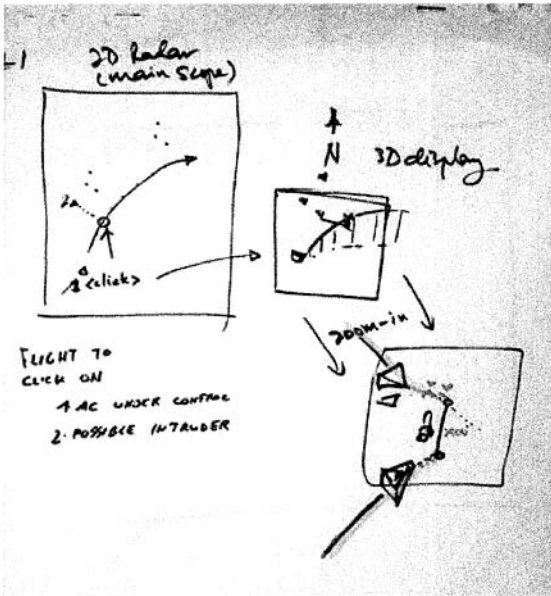 2D Radar
(main scope)
N
3D display
<click>
zoom-in
FLIGHT TO
CLICK ON
1 AC UNDER CONTROL
2. POSSIBLE INTRUDER